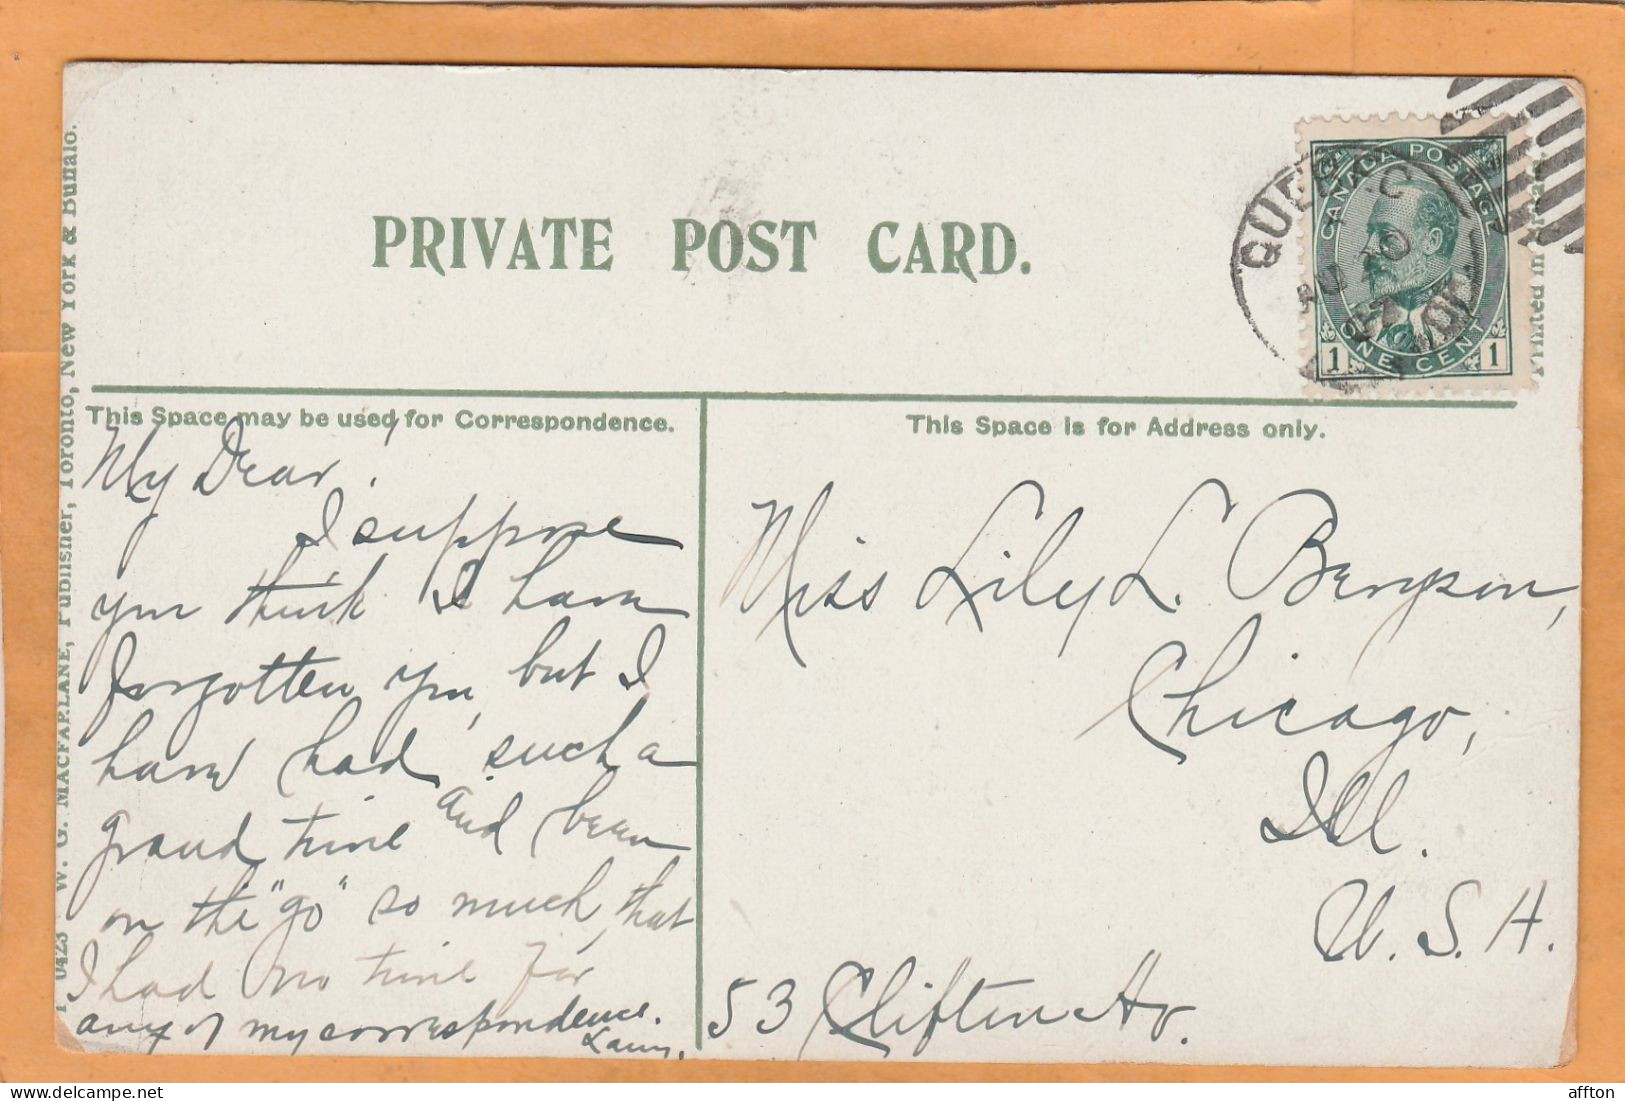 PRIVATE POST CARD.
This Space may be used for Correspondence.
This Space is for Address only.
My Dear!
I suppose
you think I have
forgotten you, but I
have had such a
grand time and been
on the "go" so much, that
I had no time for
any of my correspondence.
Miss Lily L. Bengson,
Chicago,
Ill.
U.S.A.
53 Clifton Av.
0423 W. G. MACFARLANE, Publisher, Toronto, New York & Buffalo.
Printed in
QUEBEC
CANADA POSTAGE
1 ONE CENT 1
affton